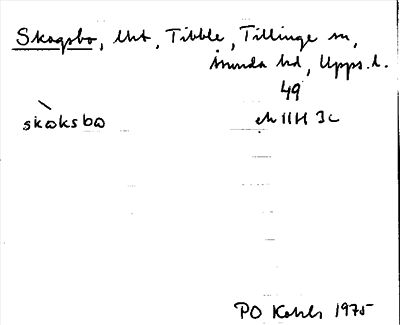 Skogsbo, lht, Tibble, Tillinge sn,
Åsunda hd, Upps. l.
49
skɷksbɷ ek 11H 3c
PO Kohls 1975